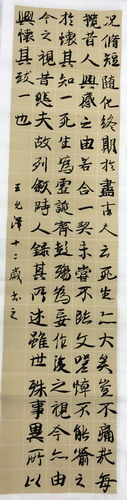 況脩短隨化終期於盡古人云死生亦大矣豈不痛哉每
攬昔人興感之由若合一契未嘗不臨文嗟悼不能喻之
於懷固知一死生為虛誕齊彭殤為妄作後之視今亦由
今之視昔悲夫故列敘時人錄其所述雖世殊事異所以
興懷其致一也
王允澤十二歲書之